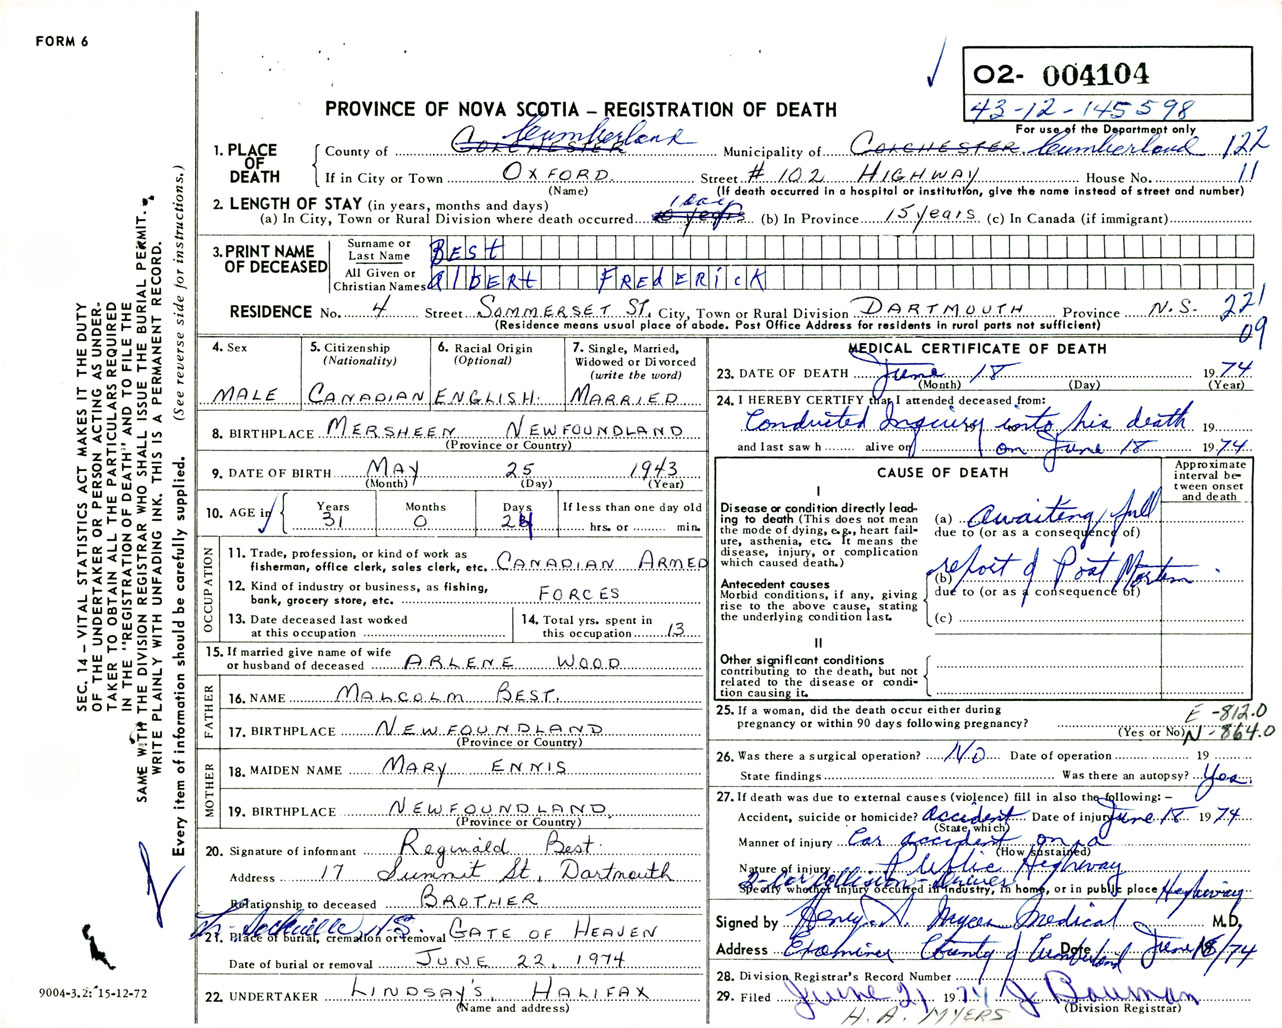 FORM 6
O2- 004104
43-12-145598
For use of the Department only
PROVINCE OF NOVA SCOTIA – REGISTRATION OF DEATH
1. PLACE OF DEATH
County of COLCHESTER Cumberland Municipality of COLCHESTER Cumberland 122
If in City or Town OXFORD Street # 102 HIGHWAY House No. 11
(Name) (If death occurred in a hospital or institution, give the name instead of street and number)
2. LENGTH OF STAY (in years, months and days)
(a) In City, Town or Rural Division where death occurred 10 years 1 day (b) In Province 15 years (c) In Canada (if immigrant)
3. PRINT NAME OF DECEASED
Surname or Last Name BEST
All Given or Christian Names AlBERt FREdERicK
RESIDENCE No. 4 Street SOMMERSET ST. City, Town or Rural Division DARTMOUTH Province N.S. 221
09
(Residence means usual place of abode. Post Office Address for residents in rural parts not sufficient)
4. Sex MALE
5. Citizenship (Nationality) CANADIAN
6. Racial Origin (Optional) ENGLISH
7. Single, Married, Widowed or Divorced (write the word) MARRIED
8. BIRTHPLACE MERSHEEN NEWFOUNDLAND
(Province or Country)
9. DATE OF BIRTH MAY 25 1943
(Month) (Day) (Year)
10. AGE in Years 31 Months 0 Days 24 If less than one day old hrs. or min.
OCCUPATION
11. Trade, profession, or kind of work as fisherman, office clerk, sales clerk, etc. CANADIAN ARMED
12. Kind of industry or business, as fishing, bank, grocery store, etc. FORCES
13. Date deceased last worked at this occupation
14. Total yrs. spent in this occupation 13
15. If married give name of wife or husband of deceased ARLENE WOOD
FATHER
16. NAME MALCOLM BEST.
17. BIRTHPLACE NEWFOUNDLAND
(Province or Country)
MOTHER
18. MAIDEN NAME MARY ENNIS
19. BIRTHPLACE NEWFOUNDLAND
(Province or Country)
20. Signature of informant Reginald Best
Address 17 Summit St, Dartmouth
Relationship to deceased BROTHER
21. Place of burial, cremation or removal GATE OF HEAVEN Sackville N.S.
Date of burial or removal JUNE 22, 1974
22. UNDERTAKER LINDSAY'S, HALIFAX
(Name and address)
MEDICAL CERTIFICATE OF DEATH
23. DATE OF DEATH June 18 1974
(Month) (Day) (Year)
24. I HEREBY CERTIFY that I attended deceased from:
Conducted Inquiry into his death 19
and last saw h alive on on June 18 1974
CAUSE OF DEATH
Approximate interval between onset and death
I
Disease or condition directly leading to death (This does not mean the mode of dying, e.g., heart failure, asthenia, etc. It means the disease, injury, or complication which caused death.)
(a) Awaiting full
due to (or as a consequence of)
Antecedent causes
Morbid conditions, if any, giving rise to the above cause, stating the underlying condition last.
(b) report of Post Mortem
due to (or as a consequence of)
(c)
II
Other significant conditions contributing to the death, but not related to the disease or condition causing it.
25. If a woman, did the death occur either during pregnancy or within 90 days following pregnancy?
(Yes or No)
E-812.0
N-864.0
26. Was there a surgical operation? NO Date of operation 19
State findings Was there an autopsy? Yes.
27. If death was due to external causes (violence) fill in also the following: –
Accident, suicide or homicide? accident Date of injury June 18 1974
(State which)
Manner of injury Car accident on a
(How sustained)
Nature of injury Public Highway
2-car collision - driver
Specify whether injury occurred in industry, in home, or in public place Highway
Signed by Henry A. Myers Medical M.D.
Address Examiner County of Cumberland Date June 18/74
28. Division Registrar's Record Number
29. Filed June 21 1974 J Bowman
(Division Registrar)
H. A. MYERS
SEC. 14 – VITAL STATISTICS ACT MAKES IT THE DUTY
OF THE UNDERTAKER OR PERSON ACTING AS UNDER-
TAKER TO OBTAIN ALL THE PARTICULARS REQUIRED
IN THE "REGISTRATION OF DEATH" AND TO FILE THE
SAME WITH THE DIVISION REGISTRAR WHO SHALL ISSUE THE BURIAL PERMIT.
WRITE PLAINLY WITH UNFADING INK. THIS IS A PERMANENT RECORD.
Every item of information should be carefully supplied. (See reverse side for instructions.)
9004-3.2: 15-12-72